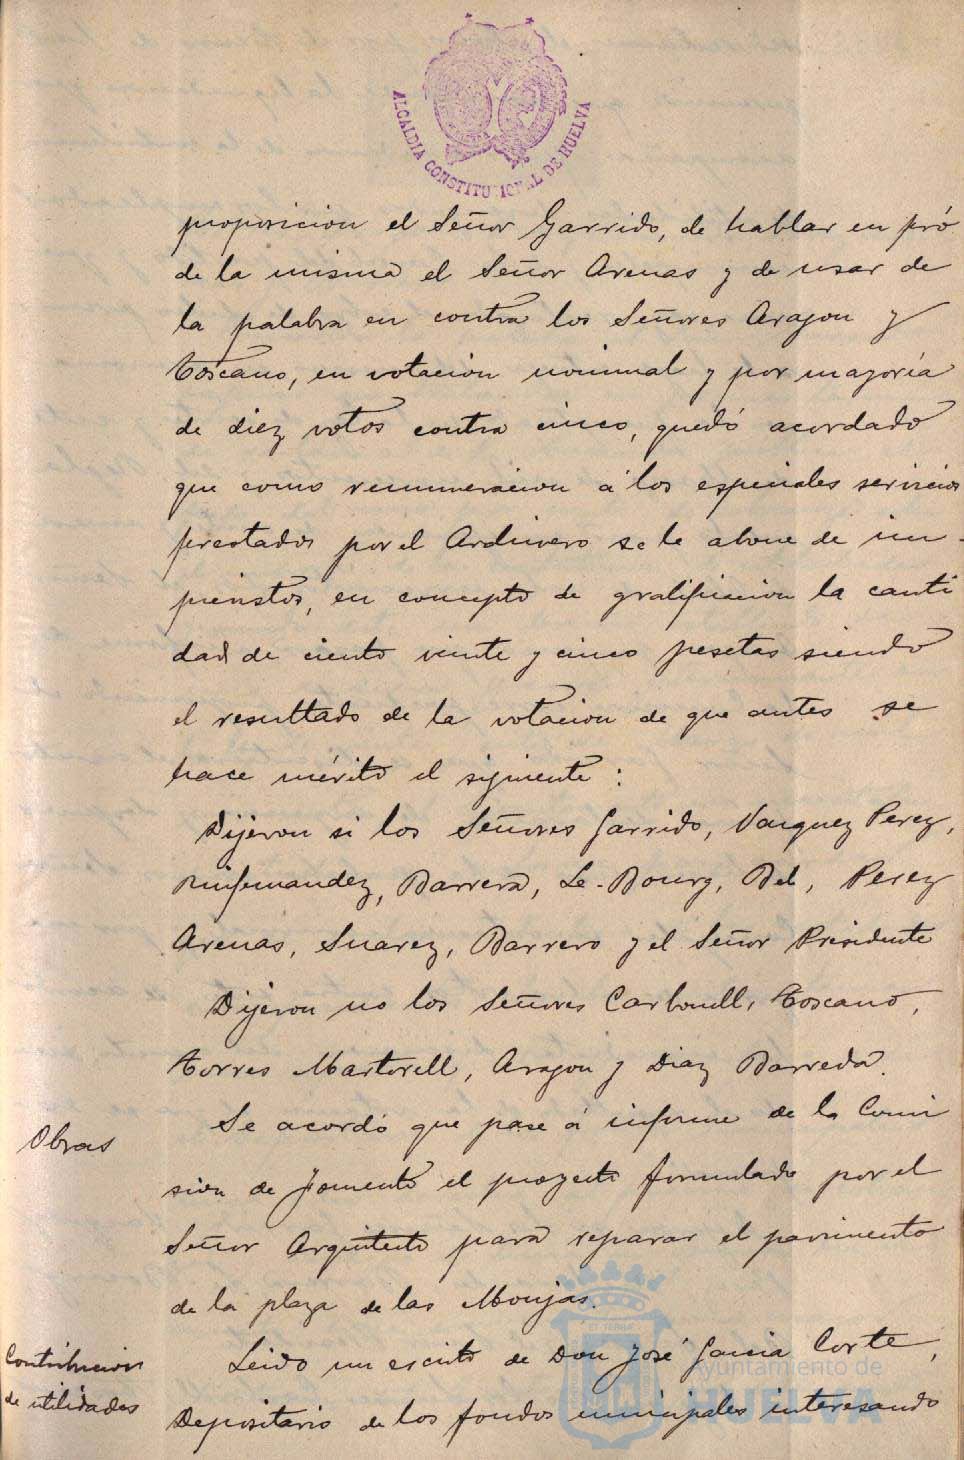 ALCALDIA CONSTITUCIONAL DE HUELVA
proposicion el Señor Garrido, de hablar en pró
de la misma el Señor Arenas y de usar de
la palabra en contra los Señores Aragon y
Toscano, en votacion nominal y por mayoría
de diez votos contra cinco, quedó acordado
que como remuneracion á los especiales servicios
prestados por el Archivero se le abone de im-
previstos, en concepto de gratificacion la canti
dad de ciento veinte y cinco pesetas siendo
el resultado de la votacion de que antes se
hace mérito el siguiente:
Dijeron si los Señores Garrido, Vazquez Perez,
Ruifernandez, Barrera, Le-Bourg, Bel, Perez
Arenas, Suarez, Barrero y el Señor Presidente
Dijeron no los Señores Carbonell, Toscano,
Torres Martorell, Aragon y Diaz Barreda.
Obras
Se acordó que pase á informe de la Comi
sion de Fomento el proyecto formulado por el
Señor Arquitecto para reparar el pavimento
de la plaza de las Monjas.
Contribucion
de utilidades
Leido un escrito de Don José Garcia Corte,
Depositario de los fondos municipales interesando
Ayuntamiento de
HUELVA